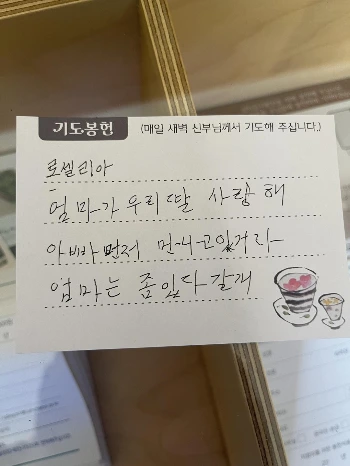 기도봉헌 (매일 새벽 신부님께서 기도해 주십니다.)
로셀리아
엄마가 우리 딸 사랑해
아빠 먼저 만나고있거라
엄마는 좀있다 갈게